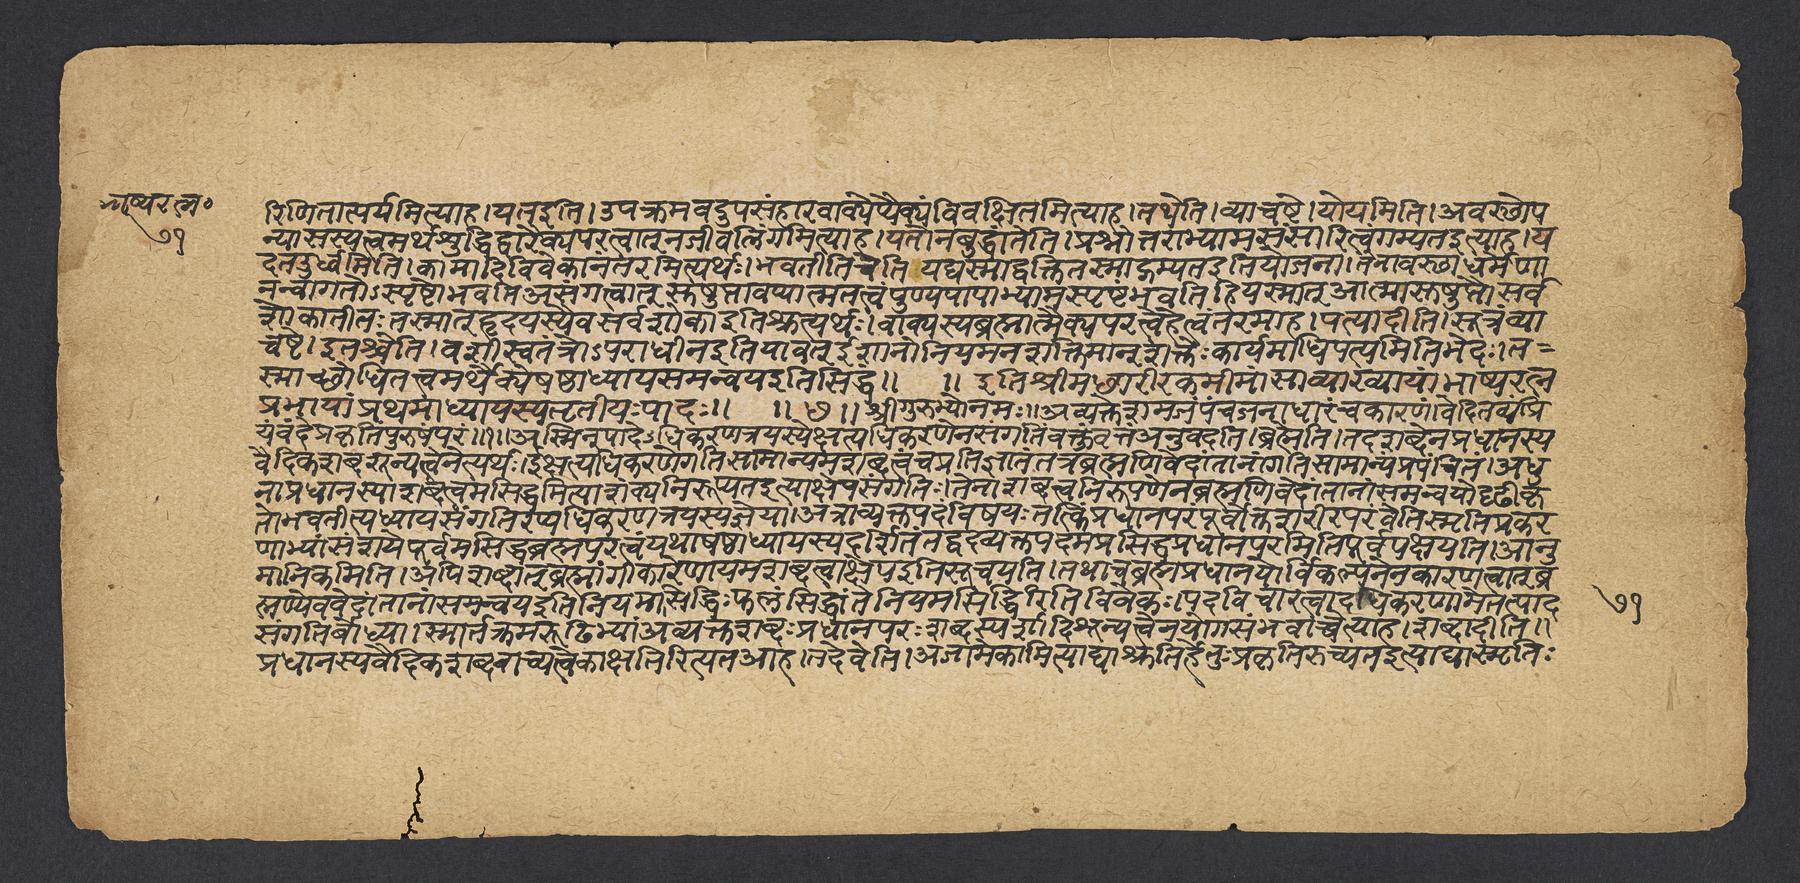 भाष्यरत्न०
७१
रिणितात्पर्यमित्याह।यतइति।उपक्रमवदुपसंहारवाक्येप्यैक्यंविवक्षितमित्याह।तथेति।व्याचष्टे।योयमिति।अवस्थोप
न्यासस्यत्वमर्थशुद्धिद्वारैक्यपरत्वात्नजीवलिंगमित्याह।यतोनबुद्धांतेति।प्रश्नोत्तराभ्यामसंसारित्वंगम्यतइत्याह।य
दतऊर्ध्वमिति।कामादिविवेकानंतरमित्यर्थः।भवतीतिचेति यद्यस्माद्वक्तितस्माद्गम्यतइतियोजना।तेनावस्थाधर्मेणा
नन्वागतोऽस्पृष्टोभवतिअसंगत्वात् सुषुप्तावप्यात्मतत्वंपुण्यपापाभ्यामस्पृष्टंभवतिहियस्मात् आत्मासुषुप्तौ सर्व
शोकातीतःतस्मात्हृदयस्यैवसर्वेशोकाइतिश्रुत्यर्थः।वाक्यस्यब्रह्मात्मैक्यपरत्वेहेत्वंतरमाह।पत्यादीति।सूत्रंव्या
चष्टे।इतश्चेति।वशीस्वतंत्रोऽपराधीनइतियावत्ईशानोनियमनशक्तिमान्शक्तेःकार्यमाधिपत्यमितिभेदः।त=
स्माच्छोधितत्वमर्थैक्येषष्ठाध्यायसमन्वयइतिसिद्धं॥ ॥ इतिश्रीमच्छारीरकमीमांसाव्याख्यायां भाष्यरत्न
प्रभायां प्रथमाध्यायस्यतृतीयःपादः॥ ॥ ७ ॥ श्रीगुरुभ्योनमः॥अव्यक्तेशमजंपंचजनाधारंचकारणं।वेदितव्यंप्रि
यंवंदेप्रकृतिंपुरुषंपरं॥१॥अस्मिन्पादेऽधिकरणत्रयस्येक्षत्यधिकरणेनसंगतिंवक्तुंवृत्तंअनुवदति।ब्रह्मेति।तदशब्देनप्रधानस्य
वैदिकशब्दशून्यत्वेनेत्यर्थः।ईक्षत्यधिकरणेगतिसामान्यमशब्दत्वंचप्रतिज्ञातंतत्रब्रह्मणिवेदांतानांगतिसामान्यंप्रपंचितं।अधु
नाप्रधानस्याशब्दत्वमसिद्धमित्याशंक्यनिरूप्यतइत्याक्षेपसंगतिः।तेनाशब्दत्वनिरूपणेनब्रह्मणिवेदांतानांसमन्वयोदृढीकृ
तोभवतीत्यध्यायसंगतिरप्यधिकरणत्रयस्यज्ञेया।अत्राव्यक्तपदंविषयःतत्किंप्रधानपरंपूर्वोक्तशरीरपरंवेतिस्मृतिप्रकर
णाभ्यांसंशयेपूर्वमसिद्धब्रह्मपरत्वंयथाषष्ठाध्यायस्यदर्शितंतद्वदव्यक्तपदमप्रसिद्धप्रधानपरमितिपूर्वपक्षयति।आनु
मानिकमिति।अपिशब्दात्ब्रह्मांगीकारेणायमशब्दत्वाक्षेपइतिसूचयति।तथाचब्रह्मप्रधानयोर्विकल्पेनैनकारणत्वात्ब्र
ह्मण्येववेदांतानांसमन्वयइतिनियमासिद्धिःफलंसिद्धांतेनियमसिद्धिरितिविवेकः।पदविचारत्वादधिकरणानामेतत्पाद
संगतिर्बोध्या।स्मार्तक्रमरूढिभ्यांअव्यक्तशब्दःप्रधानपरःशब्दस्पर्शादिशून्यत्वेनयोगसंभवाच्चेत्याह।शब्दादीति॥
प्रधानस्यवैदिकशब्दवाच्यत्वेकाक्षतिरित्यतआह।तदेवेति।अजामेकामित्याद्याश्रुतिर्हेतुःप्रकृतिरुच्यतइत्याद्यास्मृतिः
७१